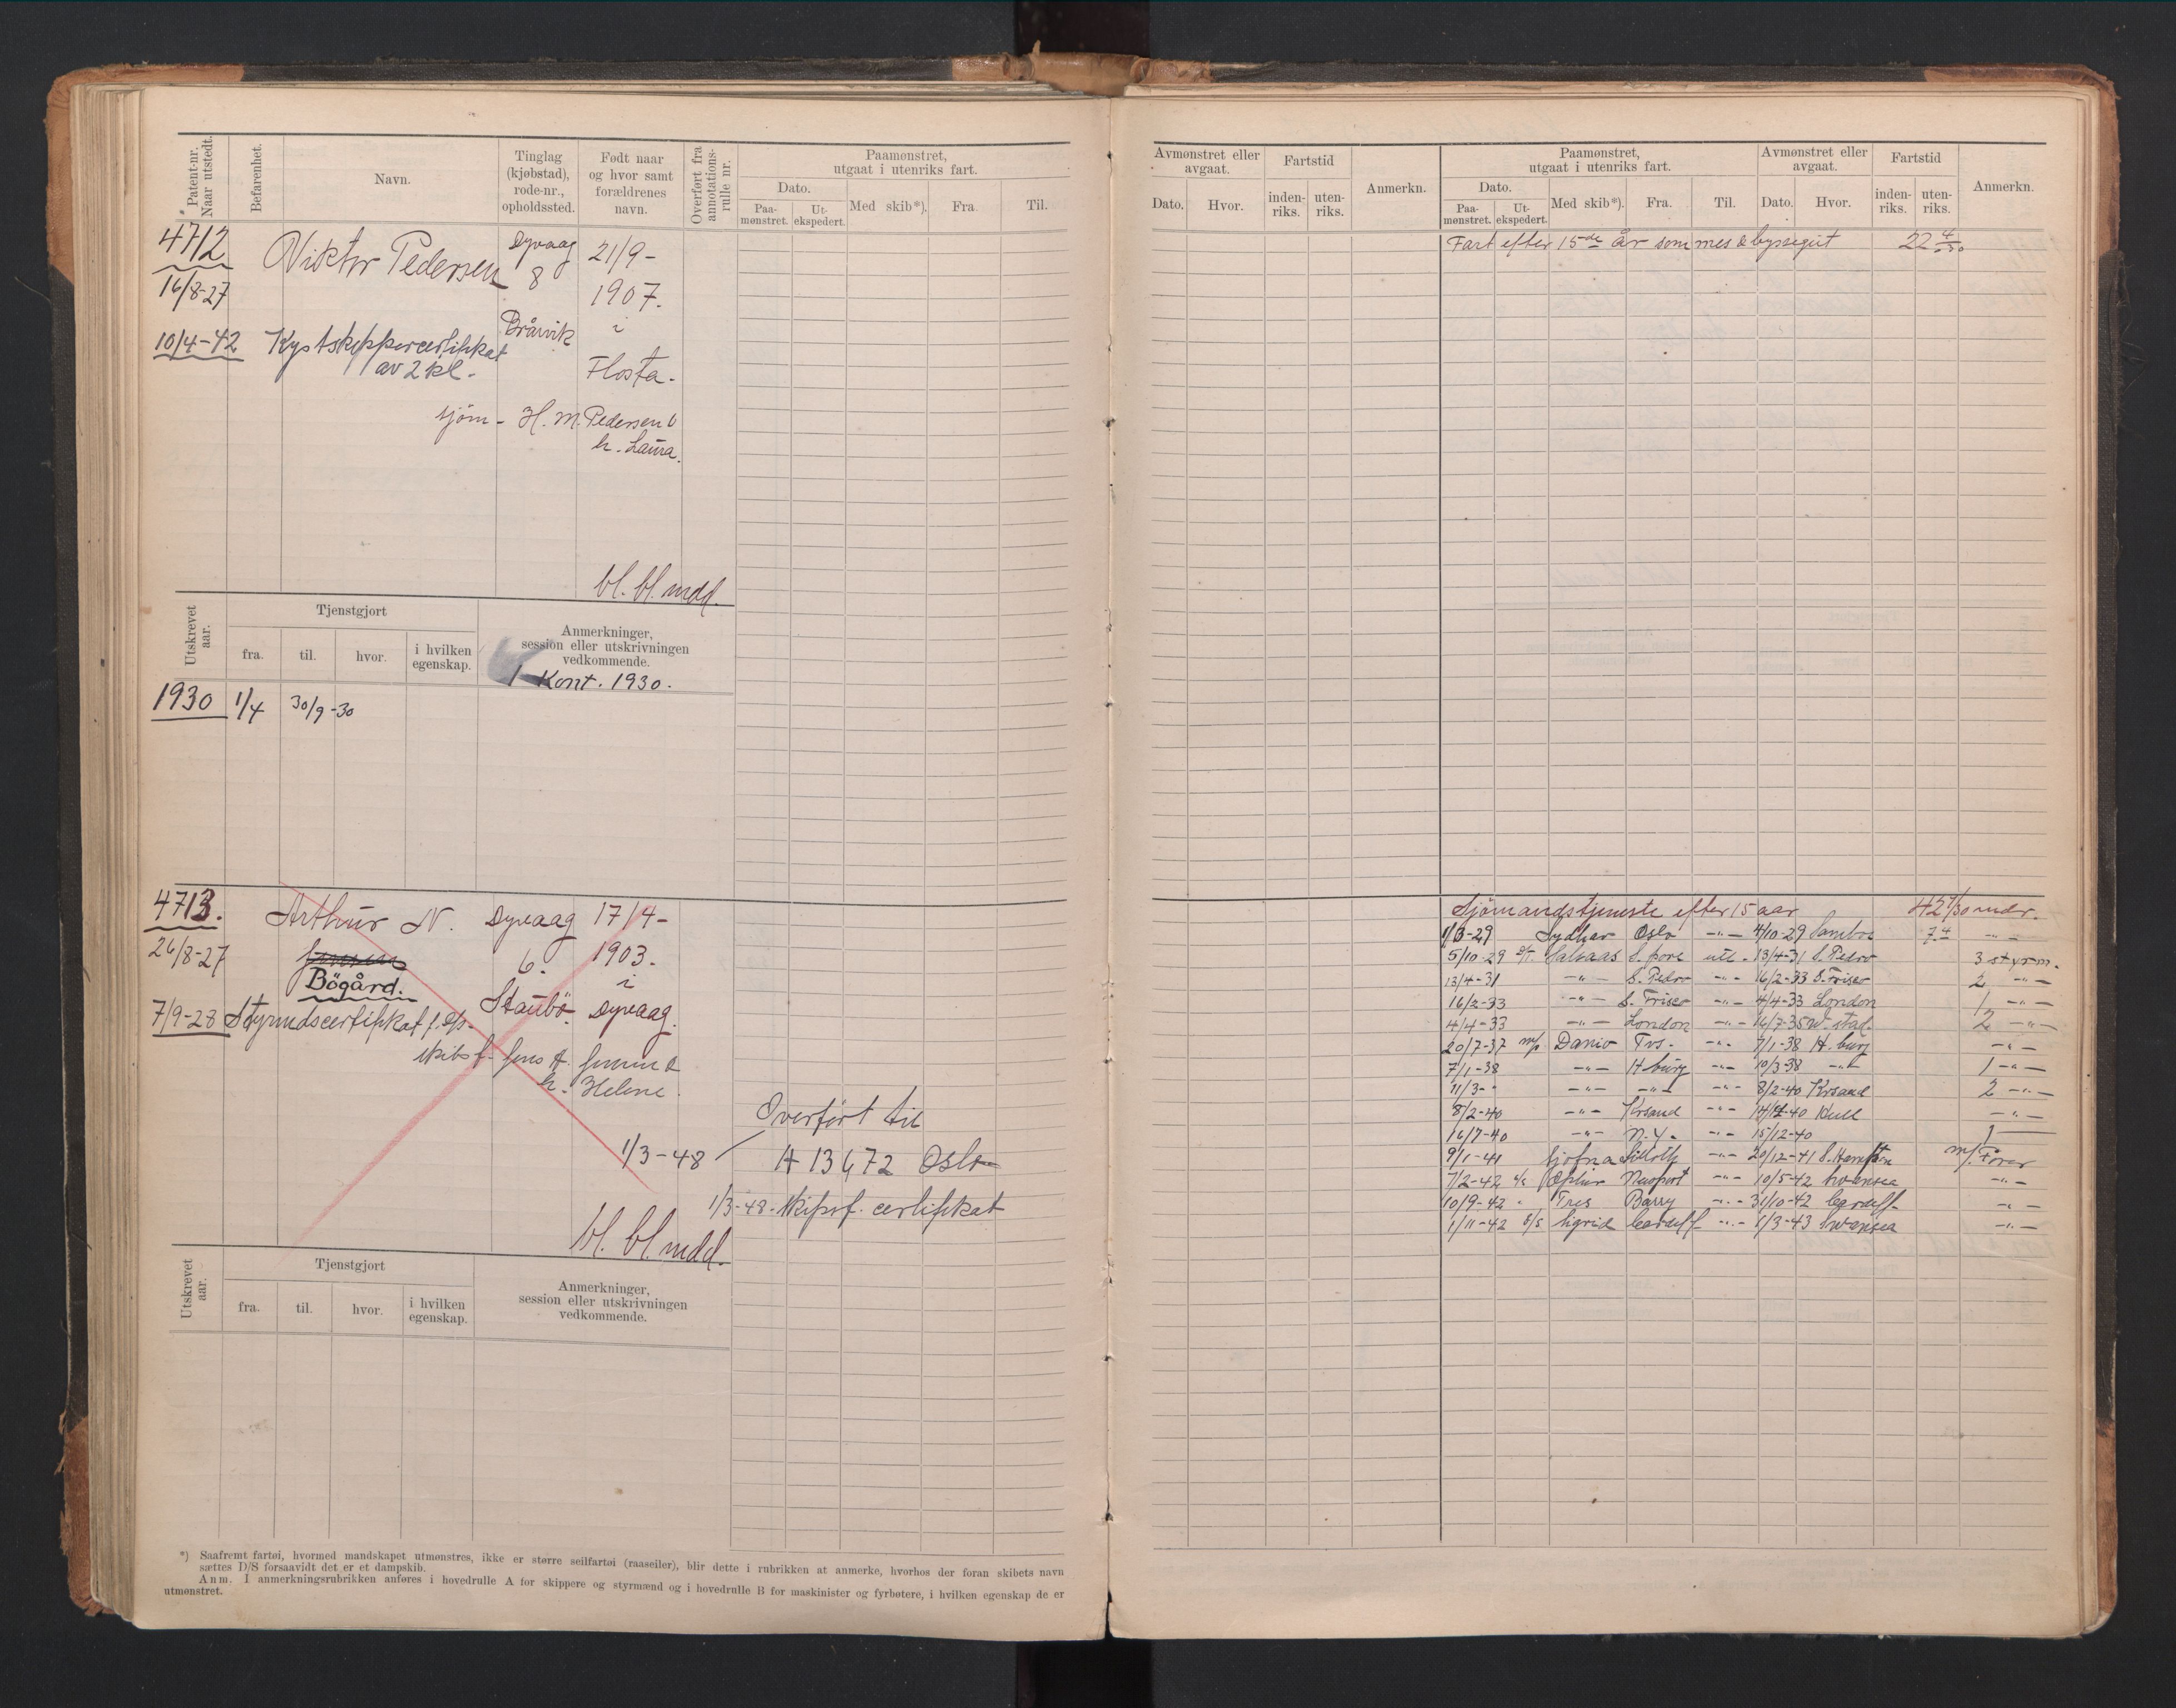 Patent-nr. Naar utstedt.
Befarenhet.
Navn.
Tinglag (kjøbstad), rode-nr., opholdssted.
Født naar og hvor samt forældrenes navn.
Overført fra annotations-rulle nr.
Paamønstret, utgaat i utenriks fart.
Dato.
Paa-mønstret.
Ut-ekspedert.
Med skib*).
Fra.
Til.
4712
16/8-27
Viktor Pedersen
Dyvaag
8
21/9-
1907.
i
Flosta.
10/4-42 Kystskippercertifikat
av 2 kl.
sjøm - H. M. Pedersen
h. Laura.
bl. bl. mdd.
Utskrevet aar.
Tjenstgjort
fra.
til.
hvor.
i hvilken egenskap.
Anmerkninger, session eller utskrivningen vedkommende.
1 Kont. 1930.
1930 1/4 30/9-30
4713.
26/8-27
Arthur N.
Bögård.
Dyvaag
6.
Staubö
17/4-
1903.
i
Dyvaag.
7/9-28 Styrmdscertifikat f.
skibsf. Jens A. Jensen
h. Helene.
1/3-48 Overført til
A 13472 Oslo
1/3-48. Skipsf. certifikat
bl. bl. mdd.
Utskrevet aar.
Tjenstgjort
fra.
til.
hvor.
i hvilken egenskap.
Anmerkninger, session eller utskrivningen vedkommende.
*) Saafremt fartøi, hvormed mandskapet utmønstres, ikke er større seilfartøi (raaseiler), blir dette i rubrikken at anmerke, hvorhos der foran skibets navn
sættes D/S forsaavidt det er et dampskib.
Anm. I anmerkningsrubrikken anføres i hovedrulle A for skippere og styrmænd og i hovedrulle B for maskinister og fyrbøtere, i hvilken egenskap de er
utmønstret.
Avmønstret eller avgaat.
Dato.
Hvor.
Fartstid
inden-riks.
uten-riks.
Anmerkn.
Paamønstret, utgaat i utenriks fart.
Dato.
Paa-mønstret.
Ut-ekspedert.
Med skib*).
Fra.
Til.
Avmønstret eller avgaat.
Dato.
Hvor.
Fartstid
inden-riks.
uten-riks.
Anmerkn.
Fart efter 15de år som mes & byssegut 22 4/30
Sjömandstjeneste efter 15 aar mdr.
Sydhav Oslo -"- 4/10-29 -"-
5/10-29 utl. 13/4-31 S. Pedro 3 styrm.
13/4-31 -"- S. Pedro -"- 16/2-33 S. Frisco 2 -"-
16/2-33 -"- S. Frisco -"- 4/4-33 London 1 -"-
4/4-33 -"- London -"- 16/7-35 2 -"-
20/7-37 Danio -"- 7/1-38 H.burg -"-
7/1-38 -"- H.burg -"- 10/3-38 -"- 1 -"-
11/3- " -"- -"- -"- 8/2-40 Krsand 2 -"-
8/2-40 -"- Krsand -"- Hull -"-
16/7-40 -"- N.Y. -"- 15/12-40 1
9/1-41 Silloth -"- 20/12-41 Fører
7/2-42 Newport -"- 10/5-42 Swansea -"-
10/9-42 " Tres Barry -"- 31/10-42 Cardiff -"-
1/11-42 Sigrid Cardiff -"- 1/3-43 Swansea -"-